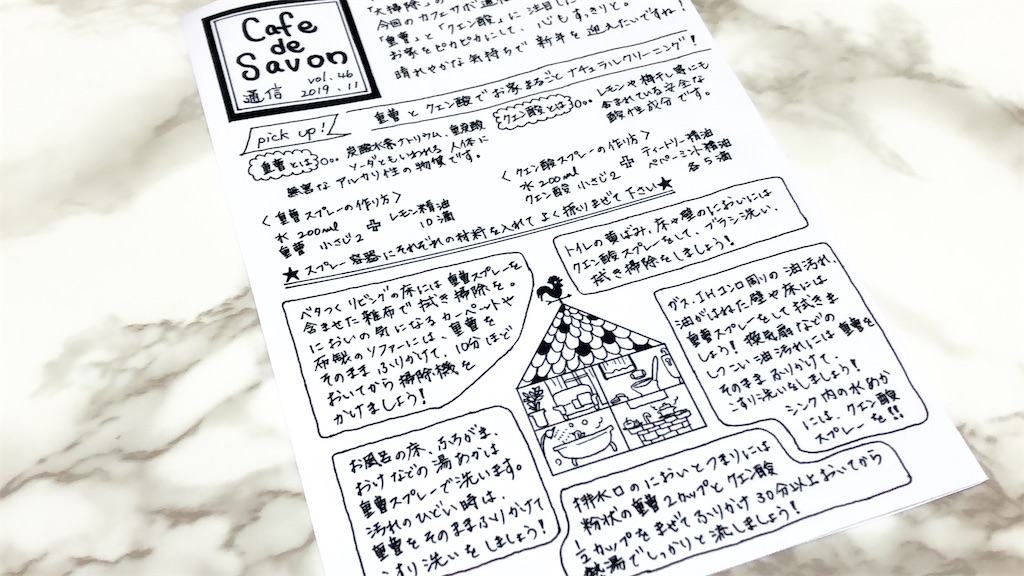 Cafe
de
Savon
vol.46
通信 2019.11
「大掃除」の
今回のカフェサボ通信
「重曹」と「クエン酸」に注目し
お家をピカピカにして、心もすっきりと。
晴れやかな気持ちで新年を迎えたいですね!
重曹とクエン酸でお家まるごとナチュラルクリーニング!
pick up!
重曹とは 炭酸水素ナトリウム、重炭酸
ソーダともいわれる人体に
無害なアルカリ性の物質です。
クエン酸とは レモンや梅干し等にも
含まれている安全な
酸性成分です。
〈重曹スプレーの作り方〉
水 200ml
重曹 小さじ2
+
レモン精油
10滴
〈クエン酸スプレーの作り方〉
水 200ml
クエン酸 小さじ2
+
ティートリー精油
ペパーミント精油
各5滴
★スプレー容器にそれぞれの材料を入れてよく振りまぜて下さい★
トイレの黄ばみ、床や壁のにおいには
クエン酸スプレーをして、ブラシ洗い、
拭き掃除をしましょう!
ベタつくリビングの床には重曹スプレーを
含ませた雑布で拭き掃除を。
においの気になるカーペットや
布製のソファーには、重曹を
そのままふりかけて、10分ほど
おいてから掃除機を
かけましょう!
ガス、IHコンロ周りの油汚れ、
油がはねた壁や床には
重曹スプレーをして拭きま
しょう!換気扇などの
しつこい油汚れには重曹を
そのままふりかけて、
こすり洗いをしましょう!
シンク内の水あか
には、クエン酸
スプレーを!!
お風呂の床、ふろがま、
おけなどの湯あかは
重曹スプレーで洗います。
汚れのひどい時は、
重曹をそのままふりかけて
こすり洗いをしましょう!
排水口のにおいとつまりには
粉状の重曹2カップとクエン酸
1/2カップをまぜてふりかけ30分以上おいてから
熱湯でしっかりと流しましょう!